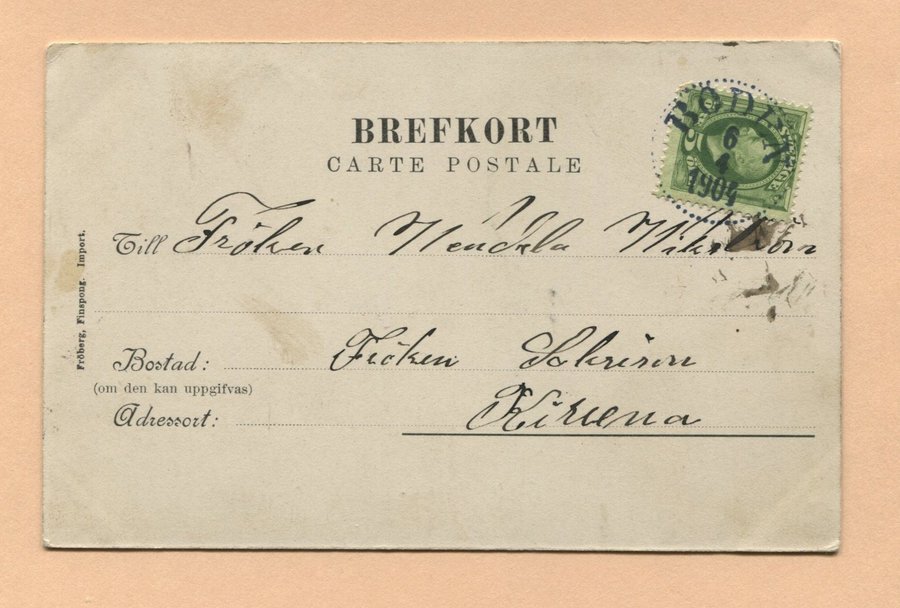 BREFKORT
CARTE POSTALE
BODEN
6
4
1904
SVERIGE
Till Fröken Hendela Wikström
Bostad: Fröken
(om den kan uppgifvas)
Adressort: Kiruna
Fröberg, Finspong. Import.